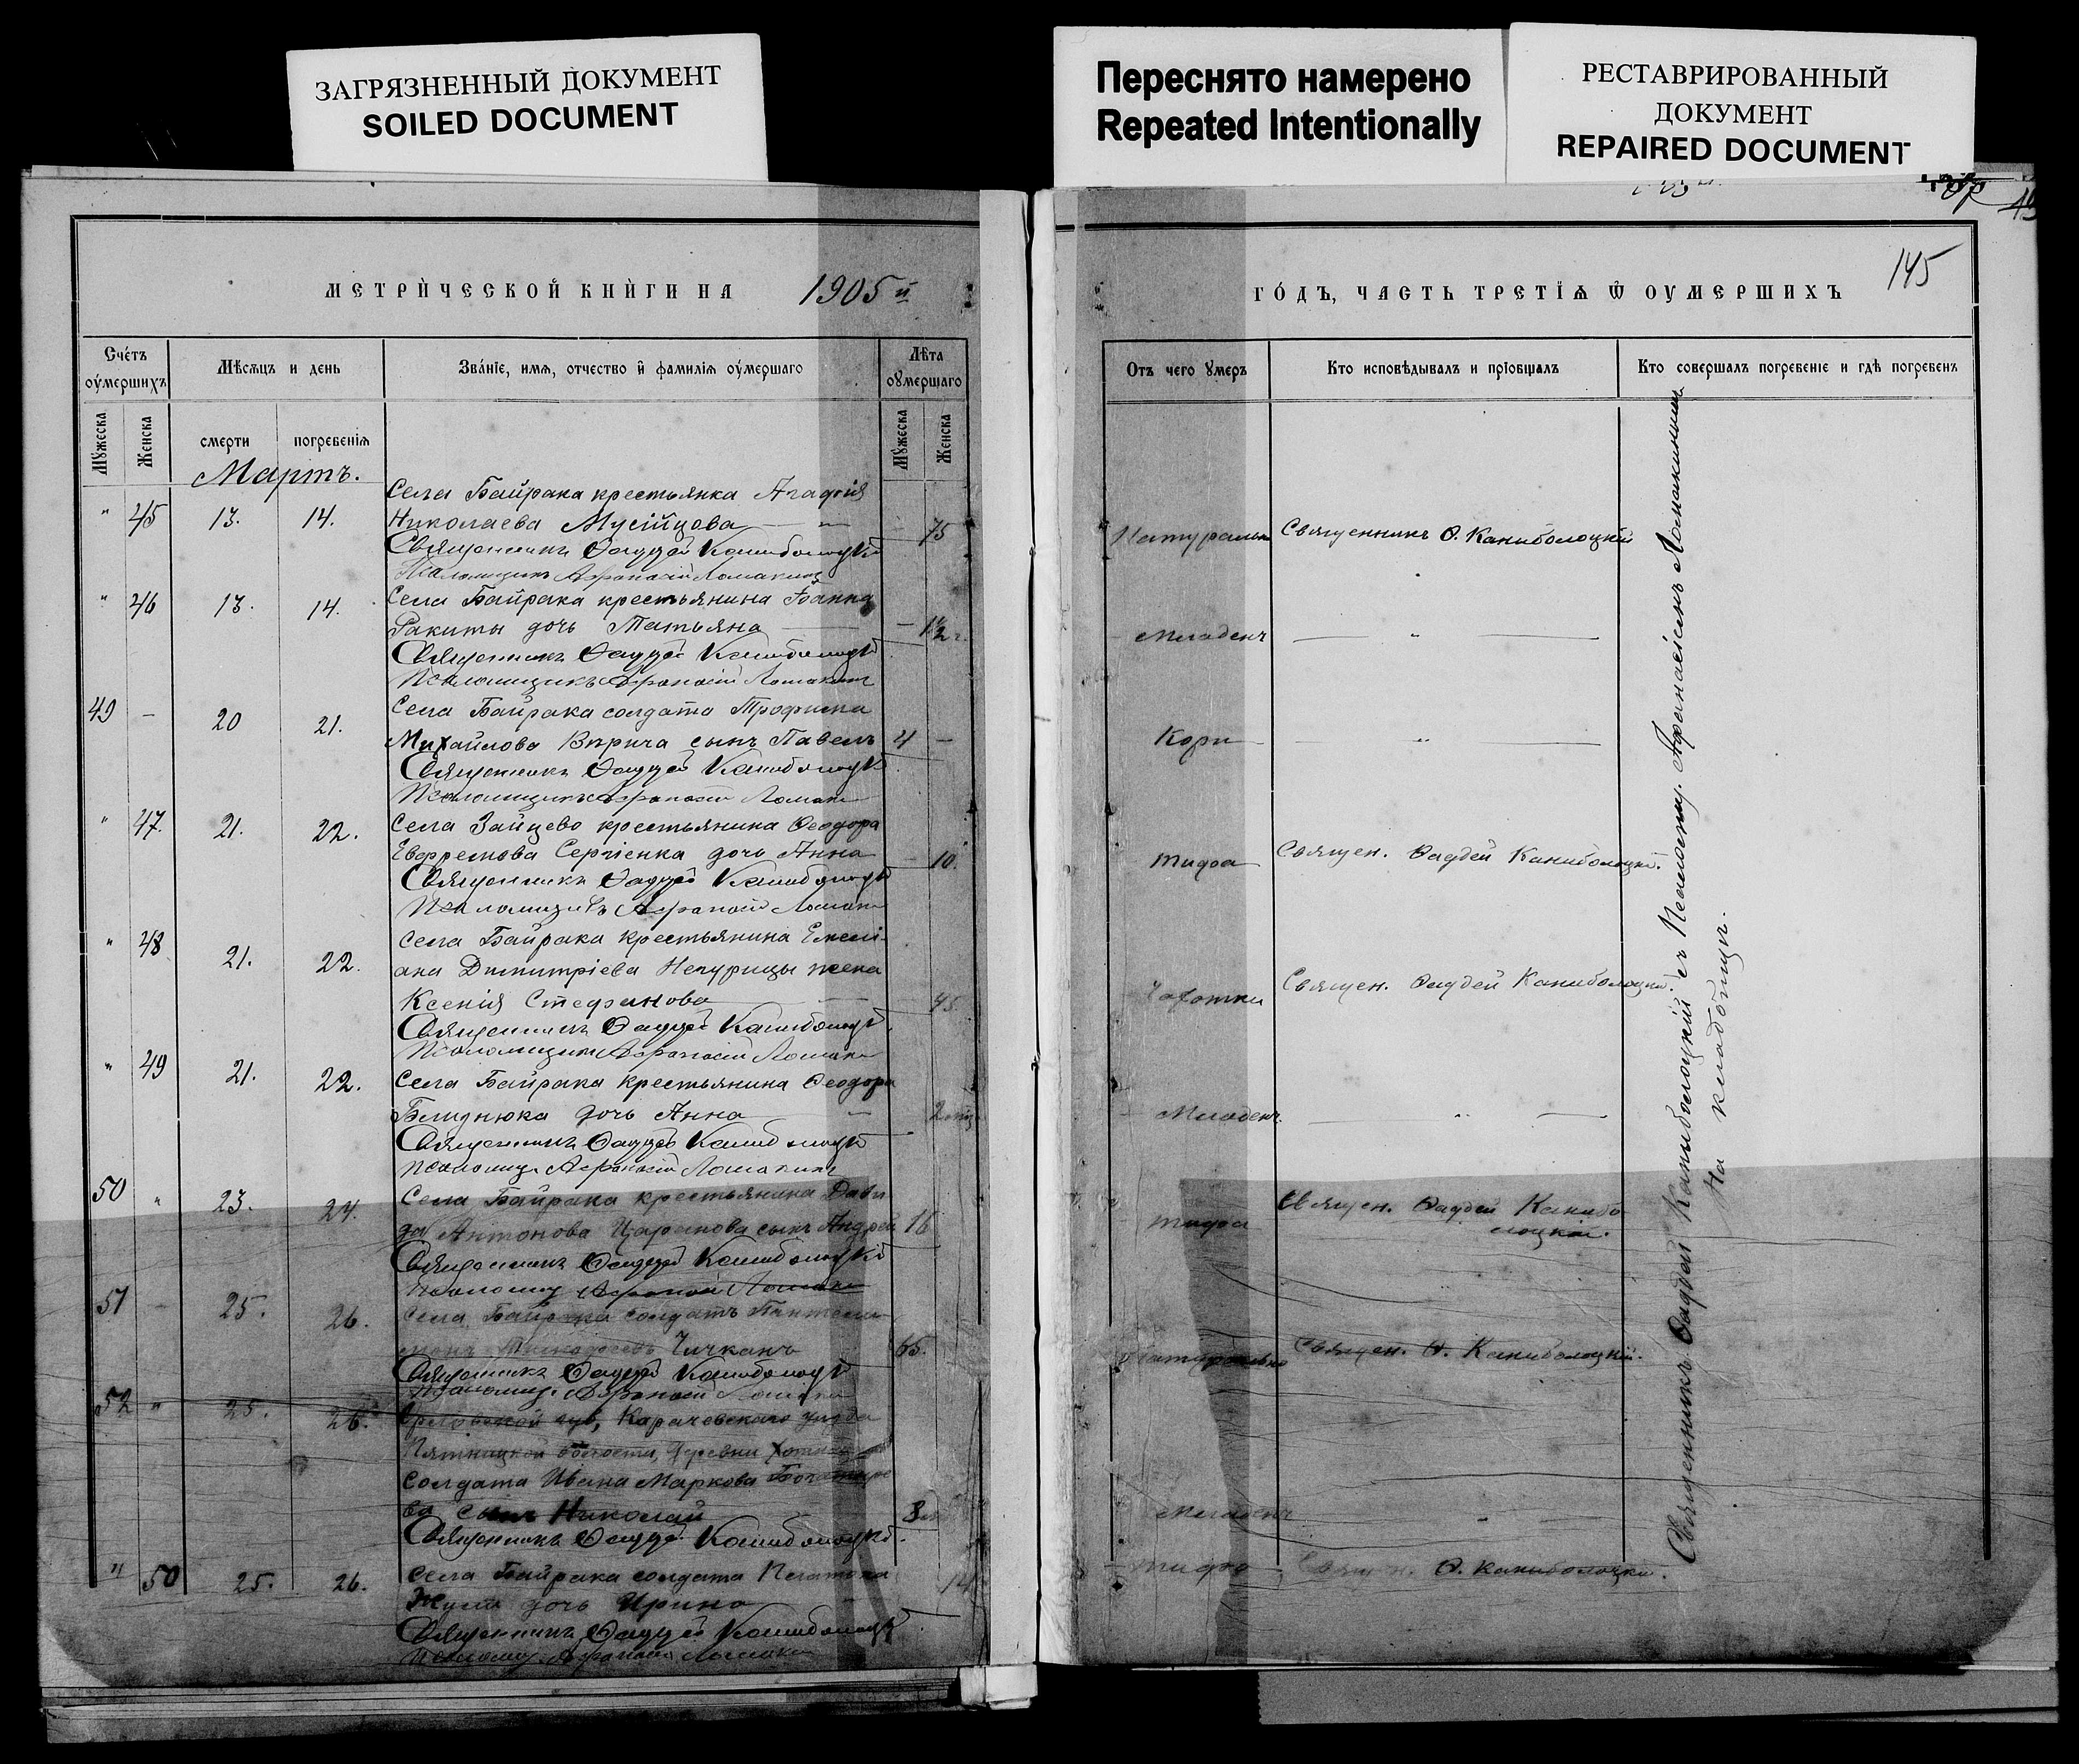 ЗАГРЯЗНЕННЫЙ ДОКУМЕНТ
SOILED DOCUMENT
Переснято намерено
Repeated Intentionally
РЕСТАВРИРОВАННЫЙ
ДОКУМЕНТ
REPAIRED DOCUMENT
145
МЕТРИЧЕСКОЙ КНИГИ НА 1905 й
ГОДЪ, ЧАСТЬ ТРЕТІЯ Ѿ ОУМЕРШИХЪ
Счетъ оумершихъ
Мѣсяцъ и день
Званіе, имя, отчество и фамилія оумершаго
Лѣта оумершаго
Отъ чего умеръ
Кто исповѣдывалъ и пріобщалъ
Кто совершалъ погребеніе и гдѣ погребенъ
Мужеска
Женска
смерти
погребенія
Мужеска
Женска
Мартъ.
Села Байрака крестьянка Агафія
" 45 13. 14. Николаева Мусійцова 75 Натурально Священникъ Ѳ. Каниболоцкій
Священникъ Ѳаддей Каниболоцкій
Псаломщикъ Афанасій Ломакинъ
" 46 13. 14. Села Байрака крестьянина Іоанна
Ракиты дочь Татьяна — Младенч — " —
Священникъ Ѳаддей Каниболоцкій
Псаломщикъ Афанасій Ломакинъ
49 — 20 21. Села Байрака солдата Трофима
Михайлова Вирича сынъ Павелъ 4 — Кори — " —
Священникъ Ѳаддей Каниболоцкій
Псаломщикъ Афанасій Ломакинъ
" 47. 21. 22. Села Зайцево крестьянина Ѳеодора
Евфремова Сергіенка дочь Анна — 10. тифа Священ. Ѳаддей Каниболоцкій.
Священникъ Ѳаддей Каниболоцкій
Псаломщикъ Афанасій Ломакинъ
" 48 21. 22. Села Байрака крестьянина Емелі-
ана Димитріева Непурицы жена
Ксенія Стефанова 45 Чахотки Священ. Ѳаддей Каниболоцкій.
Священникъ Ѳаддей Каниболоцкій
Псаломщикъ Афанасій Ломакинъ
" 49 21. 22. Села Байрака крестьянина Ѳеодора
Блиднюка дочь Анна — Младенч. — " —
Священникъ Ѳаддей Каниболоцкій
Псаломщ. Афанасій Ломакинъ
50 " 23. 24. Села Байрака крестьянина Дави-
да Антонова Царенкова сынъ Андрей 16 тифа Священ. Ѳаддей Канибо
лоцкій.
Священникъ Ѳаддей Каниболоцкій
Псаломщ Афанасій Ломакинъ
51 — 25. 26. Села Байрака солдатъ Пантелеи
монъ Чичканъ 65. Натурально Священ. Ѳ. Каниболоцкій.
Священникъ Ѳаддей Каниболоцкій
Псаломщ. Афанасій Ломакинъ
52 " 25. 26. Орловской губ, Карачевскаго уѣзда
Пятницкой волости, деревни
солдата Ивана Маркова
ва сынъ Николай 8 Младенч "
Священникъ Ѳаддей Каниболоцкій.
" 50 25. 26. Села Байрака солдата Платона 14 тифа Священ. Ѳ. Каниболоцкій.
Жули дочь Ирина
Священникъ Ѳаддей Каниболоцкій
Псаломщ. Афанасій Ломакинъ
Священникъ Ѳаддей Каниболоцкій съ Псаломщ. Афанасіемъ Ломакинымъ
На кладбищѣ.